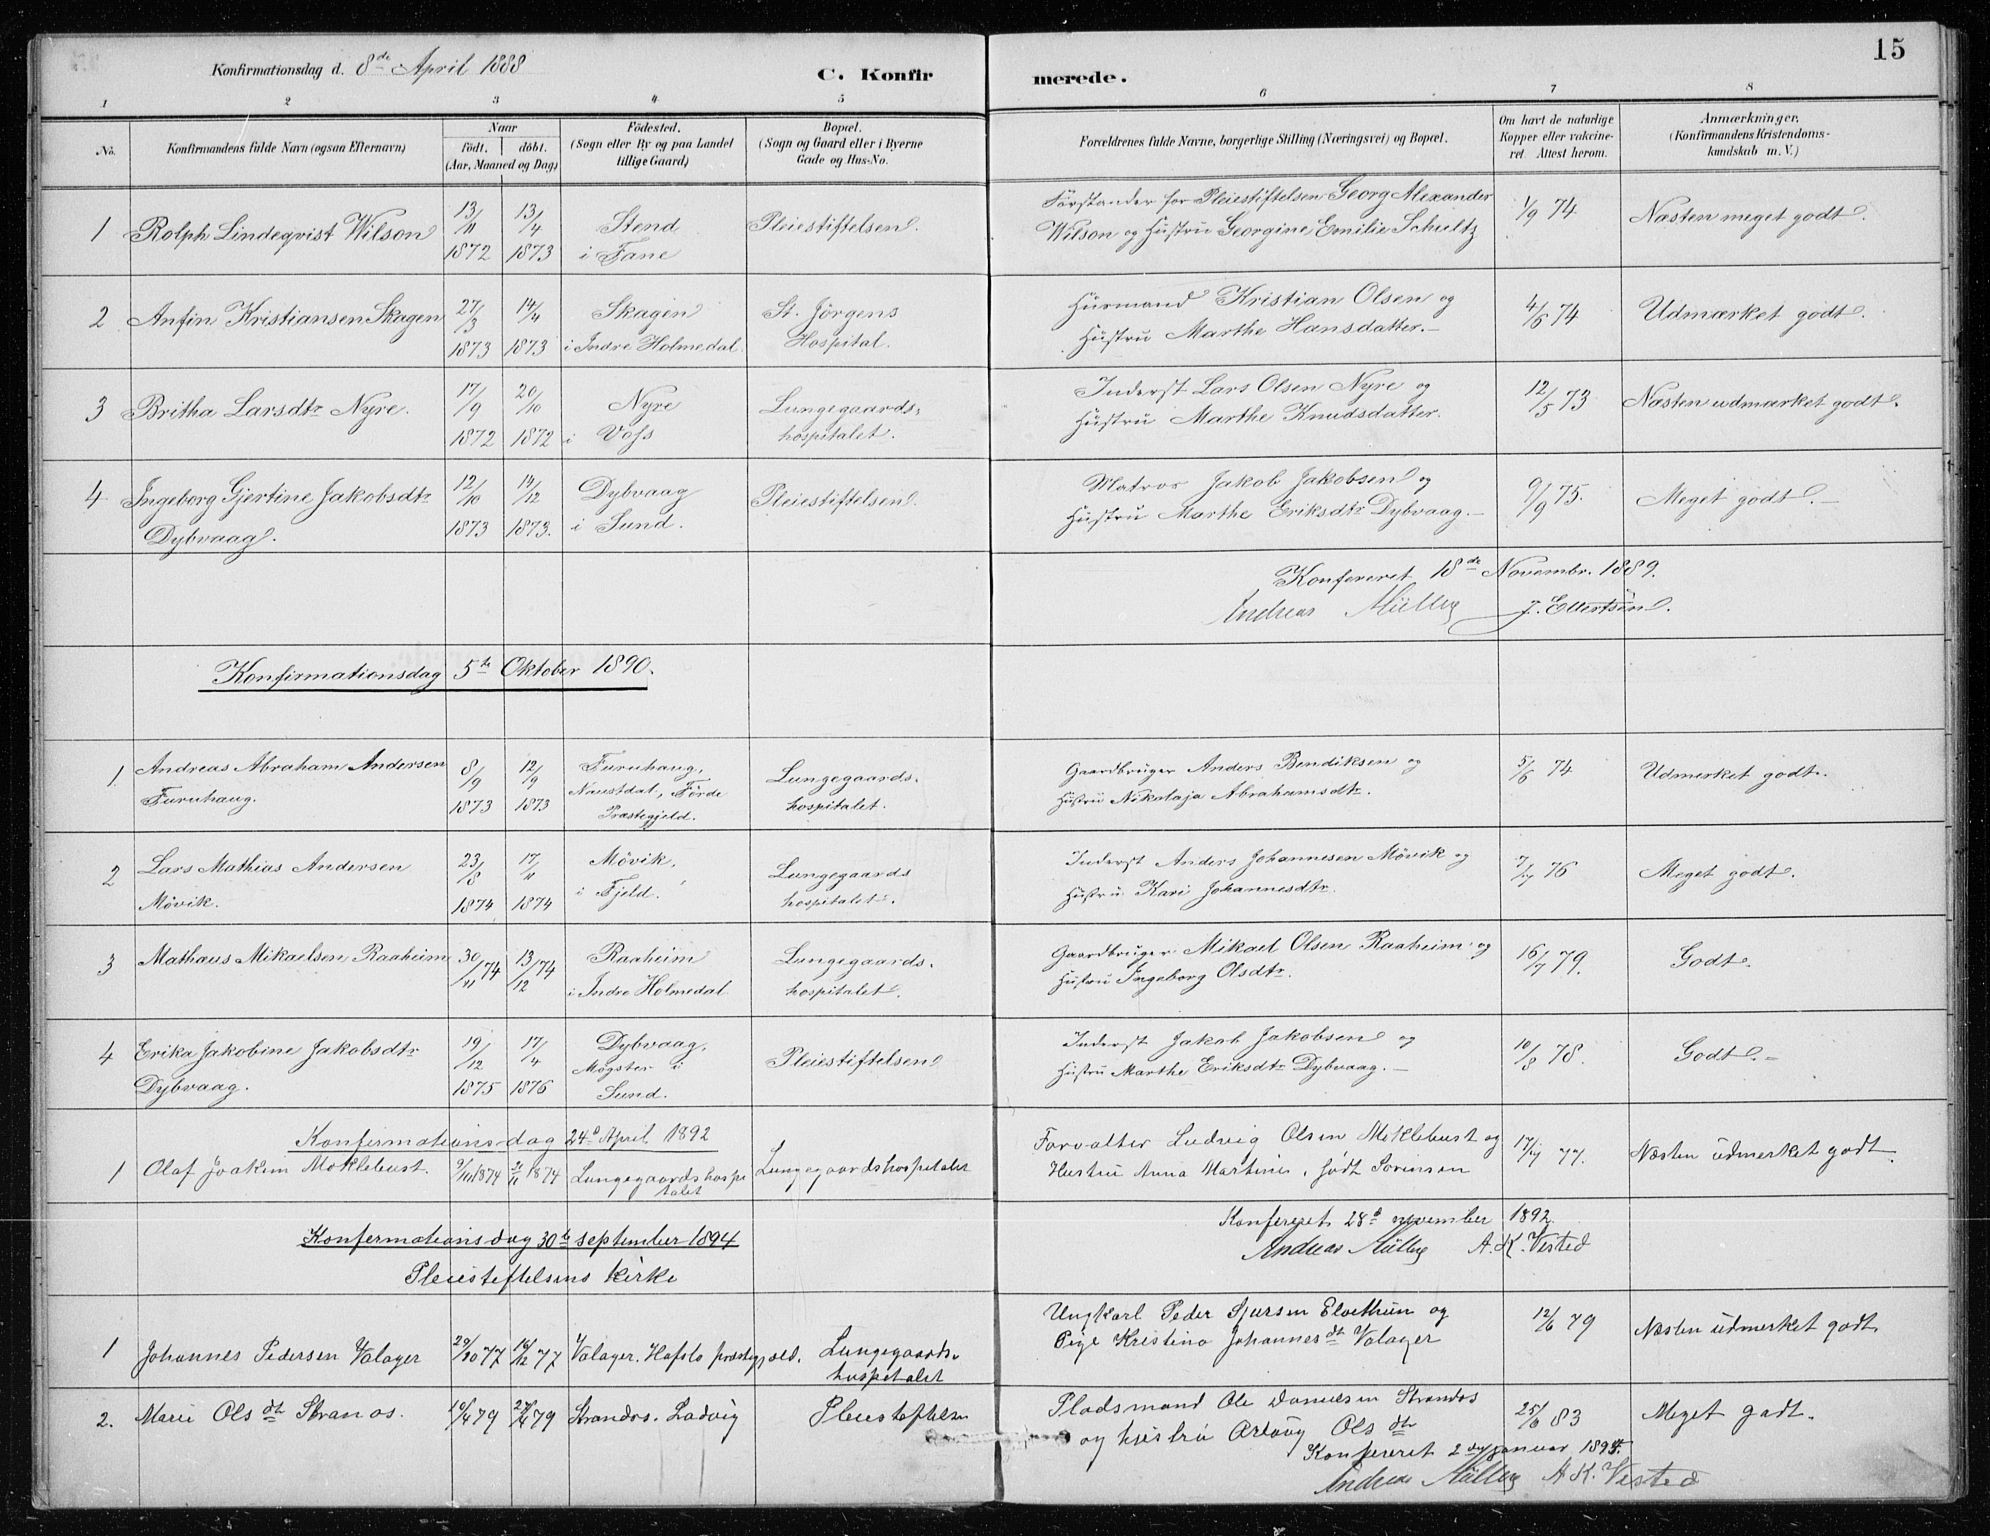 15
Konfirmationsdag d. 8de April 1888
C. Konfirmerede.
1 2 3 4 5 6 7 8
No.
Konfirmandens fulde Navn (ogsaa Efternavn)
Naar
födt. döbt.
(Aar, Maaned og Dag)
Födested.
(Sogn eller By og paa Landet
tillige Gaard)
Bopæl.
(Sogn og Gaard eller i Byerne
Gade og Hus-No.
Forældrenes fulde Navne, borgerlige Stilling (Næringsvei) og Bopæl.
Om havt de naturlige
Kopper eller vakcineret.
Attest herom.
Anmærkninger.
(Konfirmandens Kristendomskundskab
m. V.)
1 Rolph Lindeqvist Wilson 13/11 1872 13/4 1873 Stend i Fane Pleiestiftelsen. Forstander for Pleiestiftelsen Georg Alexander
Wilson og Hustru Georgine Emilie Schultz 1/9 74 Næsten meget godt.
2 Anfin Kristiansen Skagen 27/3 1873 14/4 1873 Skagen i Indre Holmedal St. Jörgens Hospital. Husmand Kristian Olsen og
Hustru Marthe Hansdatter.- 4/6 74 Udmærket godt.
3 Britha Larsdtr Nyre. 17/9 1872 20/10 1872 Nyre i Voss Lungegaardshospitalet. Inderst Lars Olsen Nyre og
Hustru Marthe Knudsdatter. 12/5 73 Næsten udmærket godt.
4 Ingeborg Gjertine Jakobsdtr
Dybvaag. 12/10 1873 14/12 1873. Dybvaag i Sund. Pleiestiftelsen. Matros Jakob Jakobsen og
Hustru Marthe Eriksdtr Dybvaag.- 9/9 75. Meget godt.-
Konfereret 18de Novembr. 1889.
Andreas Müller J. Ellertsen.
Konfirmationsdag 5te Oktober 1890.
1 Andreas Abraham Andersen
Furuhaug. 8/9 1873 12/9 1873 Furuhaug, Naustdal, Förde Præstegjeld. Lungegaardshospitalet. Gaardbruger Anders Bendiksen og
Hustru Nikolaja Abrahamsdtr. 5/6 74 Udmerket godt.
2 Lars Mathias Andersen
Mövik. 23/8 1874 17/11 1874 Mövik, i Fjeld. Lungegaardshospitalet. Inderst Anders Johannesen Mövik og
Hustru Kari Johannesdtr. 7/7 76 Meget godt.
3 Mathæus Mikaelsen Raaheim 30/11 74 13/12 74 Raaheim i Indre Holmedal Lungegaardshospitalet. Gaardbruger Mikael Olsen Raaheim og
Hustru Ingeborg Olsdtr. 16/7 79. Godt.
4 Erika Jakobine Jakobsdtr
Dybvaag. 19/12 1875 17/4 1876 Dybvaag, Møgster i Sund. Pleiestiftelsen Inderst Jakob Jakobsen og
Hustru Marthe Eriksdtr Dybvaag.- 10/8 78. Godt.-
Konfirmationsdag 24d April 1892
1 Olaf Joakim Moklebust. 9/10 1874 1874 Lungegaardshospitalet Lungegaardshospitalet Forvalter Ludvig Olsen Moklebust og
Hustru Anna Martine, födt Sørensen 17/7 77. Næsten udmerket godt.
Konfereret 28d november 1892.
Andreas Müller A. K. Vested
Konfirmationsdag 30te september 1894
Pleiestiftelsens kirke
1 Johannes Pedersen Valager 29/10 77 16/12 77 Valager. Hafslo prestegjæld. Lungegaardshospitalet Ungkarl Peder Sjursen Elvethun og
Pige Kristina Johannesdt Valager 12/6 79 Næsten udmerket godt
2. Marie Olsdt Stranos. 10/4 79 27/4 79 Strandos. Ladvig Pleiestiftelsen Pladsmand Ole Danielsen Strandos
og hustru Olsdt 25/6 83 Meget godt.
Konfereret 2 dag januar 1895.
Andreas Müller A K. Vested